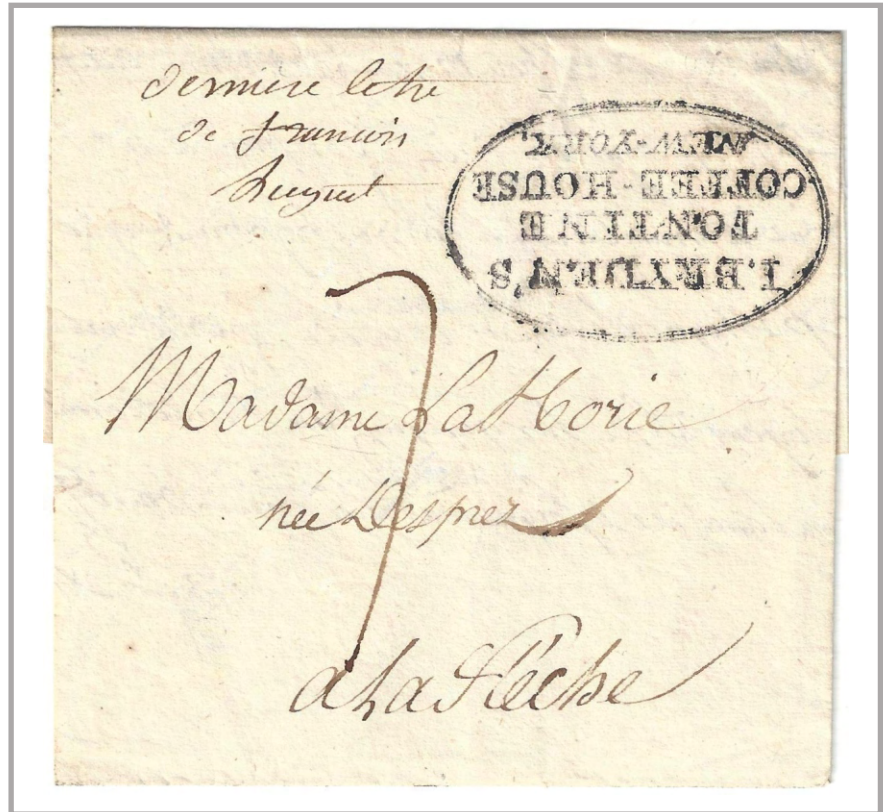 dernière lettre
de francois
J. BRYDEN'S
TONTINE
COFFEE-HOUSE
NEW-YORK.
7
Madame LaHorie
née Desprez
a La Flèche